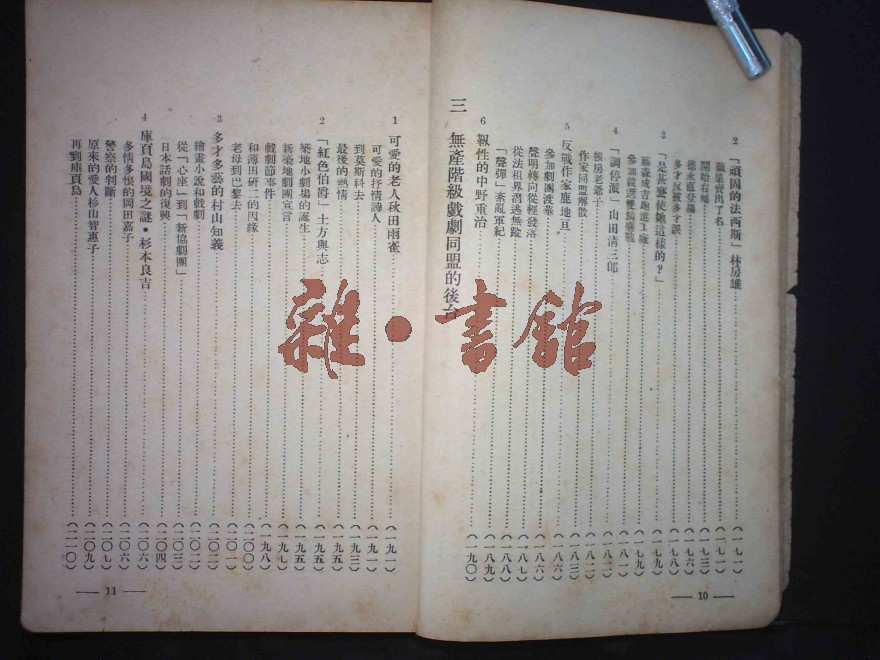 2 「頑固的法西斯」林房雄……(一七一)
蘋果賣出了名……(一七一)
開始右傾……(一七三)
德永直登場……(一七六)
多才反被多才誤……(一七八)
3 「是甚麼使她這樣的?」……(一七九)
藤森成吉走進工廠……(一七九)
參加競選……(一八一)
4 「調停派」山田清三郎……(一八二)
帳房老爺子……(一八二)
作家同盟解散……(一八三)
5 反戰作家鹿地亘……(一八六)
參加劇團渡華……(一八六)
聲明轉向從輕發落……(一八七)
從法租界潛逃無蹤……(一八八)
「聲彈」紊亂軍紀……(一八九)
6 靱性的中野重治……(一九〇)
三 無產階級戲劇同盟的後台
— 10 —
1 可愛的老人秋田雨雀……(一九一)
可愛的抒情詩人……(一九一)
到莫斯科去……(一九三)
最後的熱情……(一九五)
2 「紅色伯爵」土方與志……(一九五)
築地小劇場的誕生……(一九五)
新築地劇團宣言……(一九七)
戲劇節事件……(一九八)
和薄田研二的因緣……(二〇〇)
老母到巴黎去……(二〇一)
3 多才多藝的村山知義……(二〇二)
繪畫小說和戲劇……(二〇二)
從「心座」到「新協劇團」……(二〇三)
日本話劇的復興……(二〇四)
4 庫頁島國境之謎·杉本良吉……(二〇六)
多情多恨的岡田嘉子……(二〇六)
警察的判斷……(二〇七)
原來的愛人杉山智惠子……(二〇九)
再到庫頁島……(二一〇)
— 11 —
雜·書館